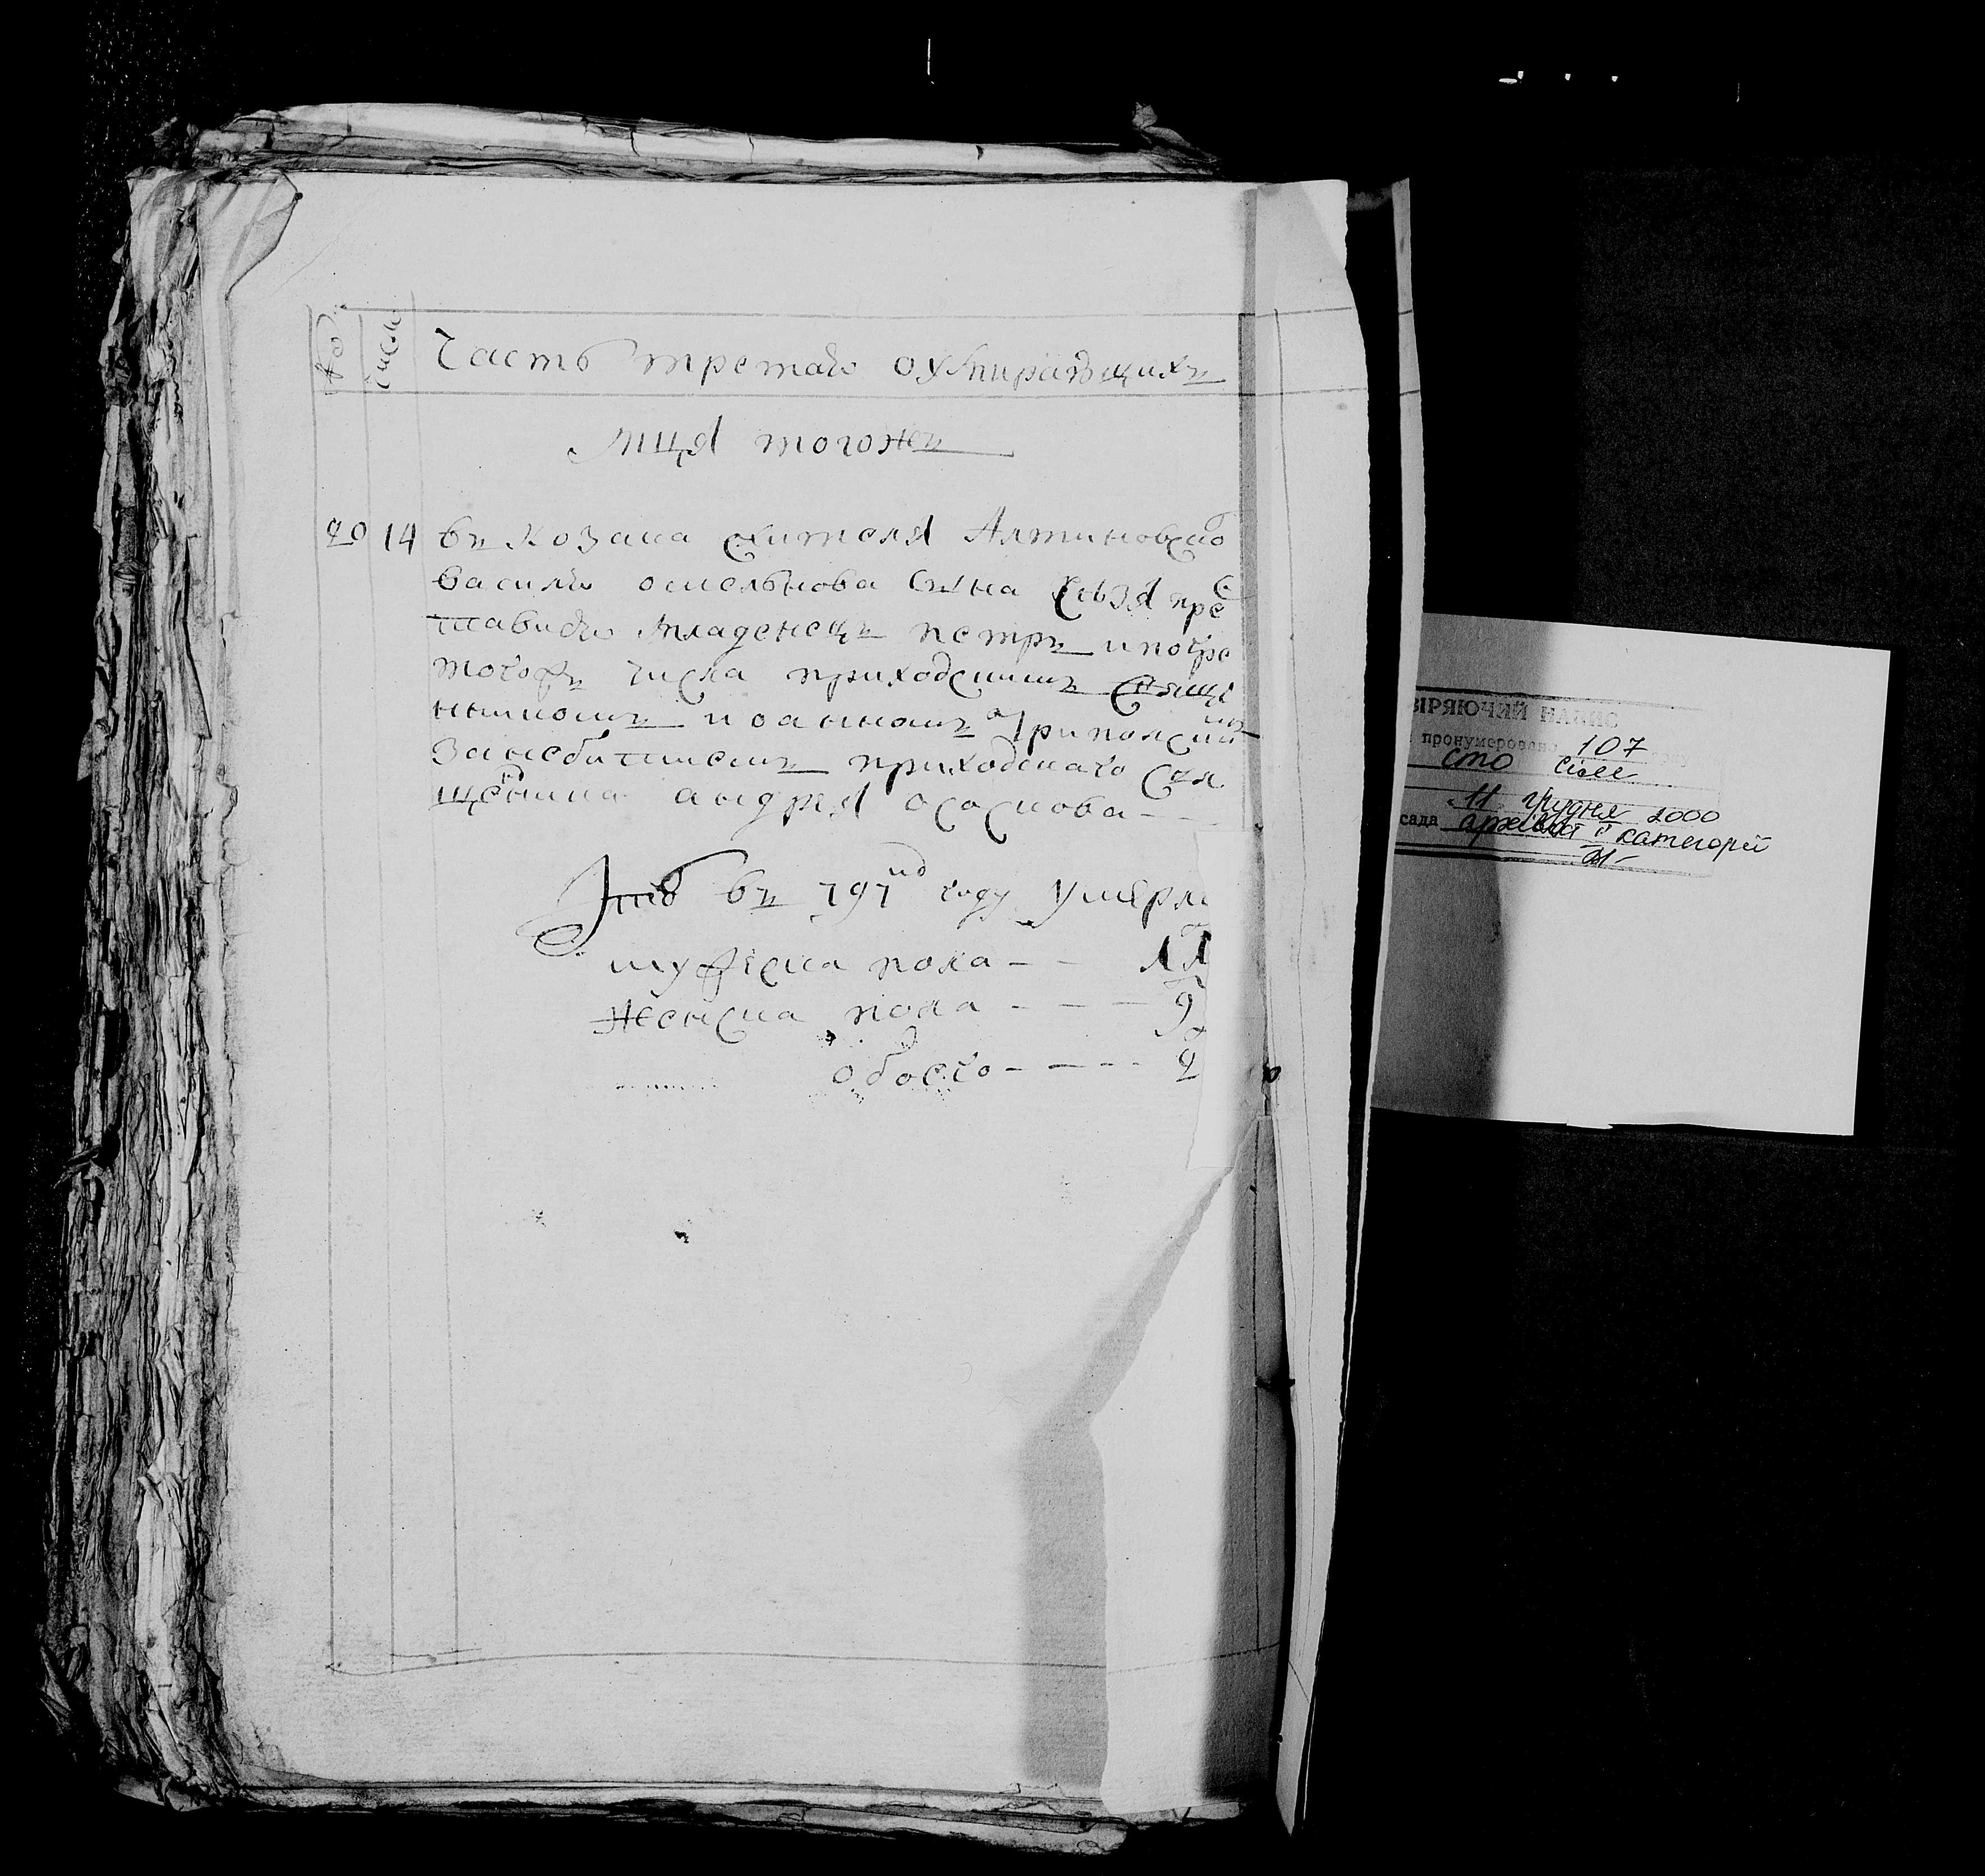 числа
Часть третаѧ оумирающихъ
мцѧ тогожъ
20 14 въ козака жителѧ Алтиновско
василѧ омелѧнова сына кнѧзѧ пре
ставися младенецъ петръ и погре
тогожъ числа приходскимъ
іоанномъ Триполским
за небитиемъ приходскаго свя
щеника андрея
Итого въ 797 году умерло
мужеска пола - - 11
женска пола - - - 9
обоего - - - - 2
ВІРЯЮЧИЙ НАПИС
пронумеровано 107
сто сім
11 грудня 2000
сада архівіст ІІ категорії